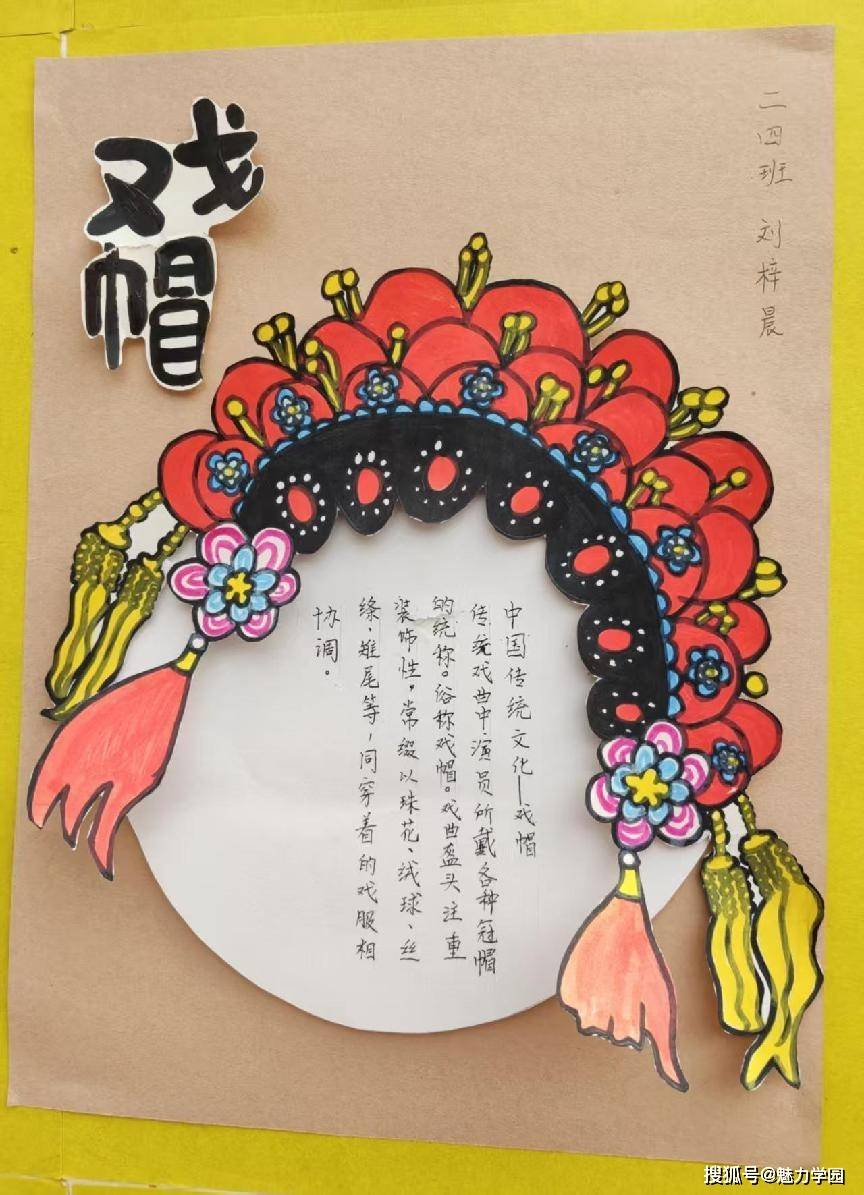 戏
帽
二四班 刘梓晨
中国传统文化—戏帽
传统戏曲中演员所戴各种冠帽
的统称。俗称戏帽。戏曲盔头注重
装饰性，常缀以珠花、绒球、丝
绦、雉尾等，同穿着的戏服相
协调。
搜狐号@魅力学园